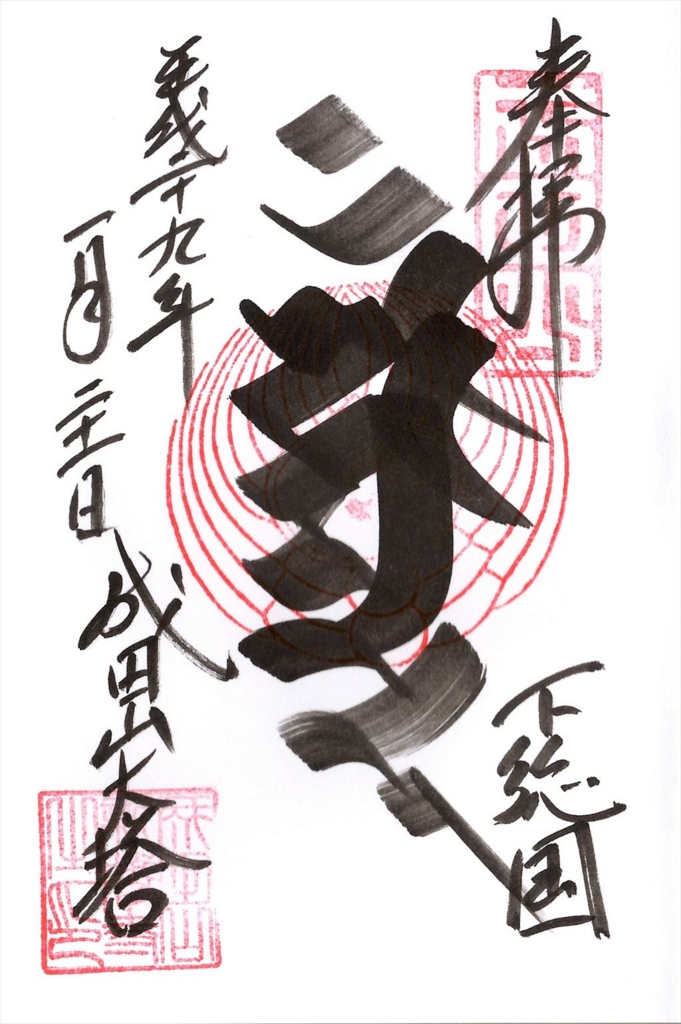 奉拝
下総国
平成二十九年
一月二十一日
成田山大塔